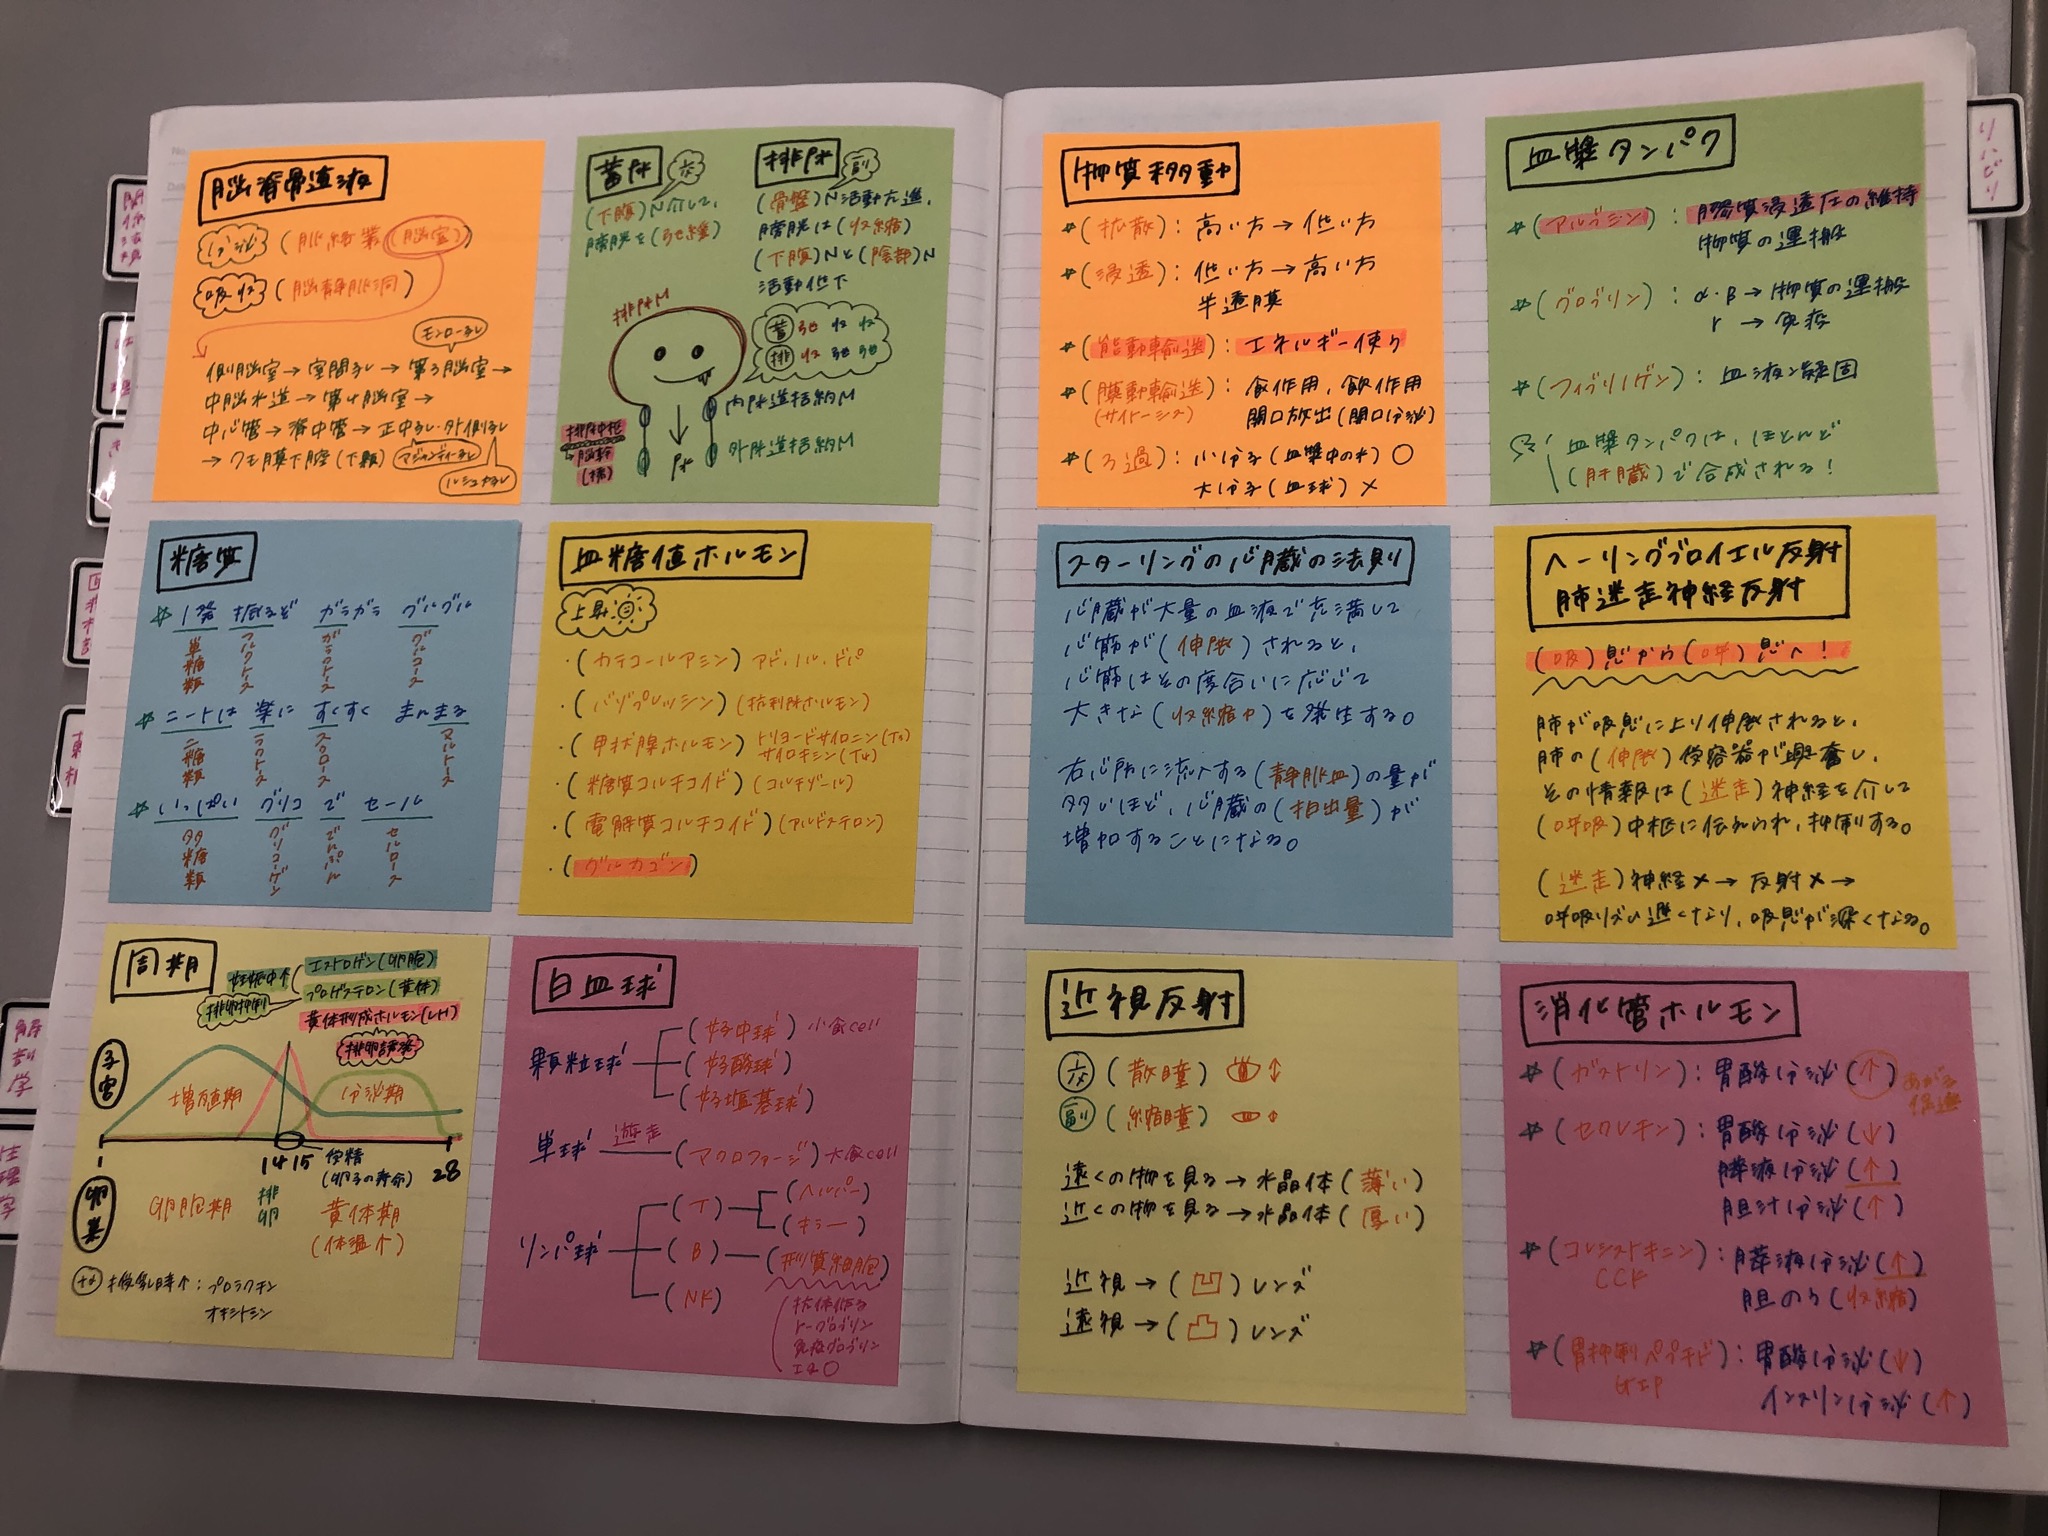 脳脊骨道液
分泌 (脈絡叢 脳室)
吸収 (脳静脈洞)
モンロー孔
側脳室→室間孔→第3脳室→
中脳水道→第4脳室→
中心管→脊中管→正中孔・外側孔
→クモ膜下腔(下顆) マジャンディー孔
ルシュカ孔
蓄尿 交
(下腹)N介して、
膀胱を(弛緩)
排尿 副
(骨盤)N活動亢進、
膀胱は(収縮)
(下腹)Nと(陰部)N
活動低下
排尿M
蓄 弛 収 収
排 収 弛 弛
内尿道括約M
外尿道括約M
排尿中枢
→脳幹
(橋)
尿
糖質
☆ 1発 振るど ガラガラ グルグル
単糖類 フルクトース ガラクトース グルコース
☆ ニートは 楽に すくすく まんまる
二糖類 ラクトース スクロース マルトース
☆ いっぱい グリコ で セール
多糖類 グリコーゲン でんぷん セルロース
血糖値ホルモン
上昇
・(カテコールアミン) アド、ノル、ドパ
・(バゾプレッシン)(抗利尿ホルモン)
・(甲状腺ホルモン) トリヨードサイロニン(T3)
サイロキシン(T4)
・(糖質コルチコイド)(コルチゾール)
・(電解質コルチコイド)(アルドステロン)
・(グルカゴン)
周期
妊娠中↑ エストロゲン(卵胞)
排卵抑制 プロゲステロン(黄体)
黄体形成ホルモン(LH)
排卵誘発
子宮
増殖期 分泌期
1 14 15 受精 28
(卵子の寿命)
卵巣
卵胞期 排卵 黄体期
(体温↑)
授乳時↑:プロラクチン
オキシトシン
白血球
顆粒球 (好中球) 小食cell
(好酸球)
(好塩基球)
単球 遊走 (マクロファージ) 大食cell
リンパ球 (T) (ヘルパー)
(キラー)
(B) (形質細胞)
(NK)
抗体作る
γ-グロブリン
免疫グロブリン
Ig○
物質移動
☆(拡散):高い方→低い方
☆(浸透):低い方→高い方
半透膜
☆(能動輸送):エネルギー使う
☆(膜動輸送):食作用、飲作用
(サイトーシス) 開口放出(開口分泌)
☆(ろ過):小分子(血漿中の水)○
大分子(血球)×
血漿タンパク
☆(アルブミン):膠質浸透圧の維持
物質の運搬
☆(グロブリン):α・β→物質の運搬
γ→免疫
☆(フィブリノゲン):血液凝固
血漿タンパクは、ほとんど
(肝臓)で合成される!
スターリングの心臓の法則
心臓が大量の血液で充満して
心筋が(伸展)されると、
心筋はその度合いに応じて
大きな(収縮力)を発生する。
右心房に流入する(静脈血)の量が
多いほど、心臓の(拍出量)が
増加することになる。
ヘーリングブロイエル反射
肺迷走神経反射
(吸)息から(呼)息へ!
肺が吸息により伸展されると、
肺の(伸展)受容器が興奮し、
その情報は(迷走)神経を介して
(呼吸)中枢に伝えられ、抑制する。
(迷走)神経×→反射×→
呼吸リズム遅くなり、吸息が深くなる。
近視反射
交(散瞳) ↕
副(縮瞳) ↕
遠くの物を見る→水晶体(薄い)
近くの物を見る→水晶体(厚い)
近視→(凹)レンズ
遠視→(凸)レンズ
消化管ホルモン
☆(ガストリン):胃酸分泌(↑) あがる
促進
☆(セクレチン):胃酸分泌(↓)
膵液分泌(↑)
胆汁分泌(↑)
☆(コレシストキニン):膵液分泌(↑)
CCK 胆のう(収縮)
☆(胃抑制ペプチド):胃酸分泌(↓)
GIP インスリン分泌(↑)
リハビリ
解剖学
生理学